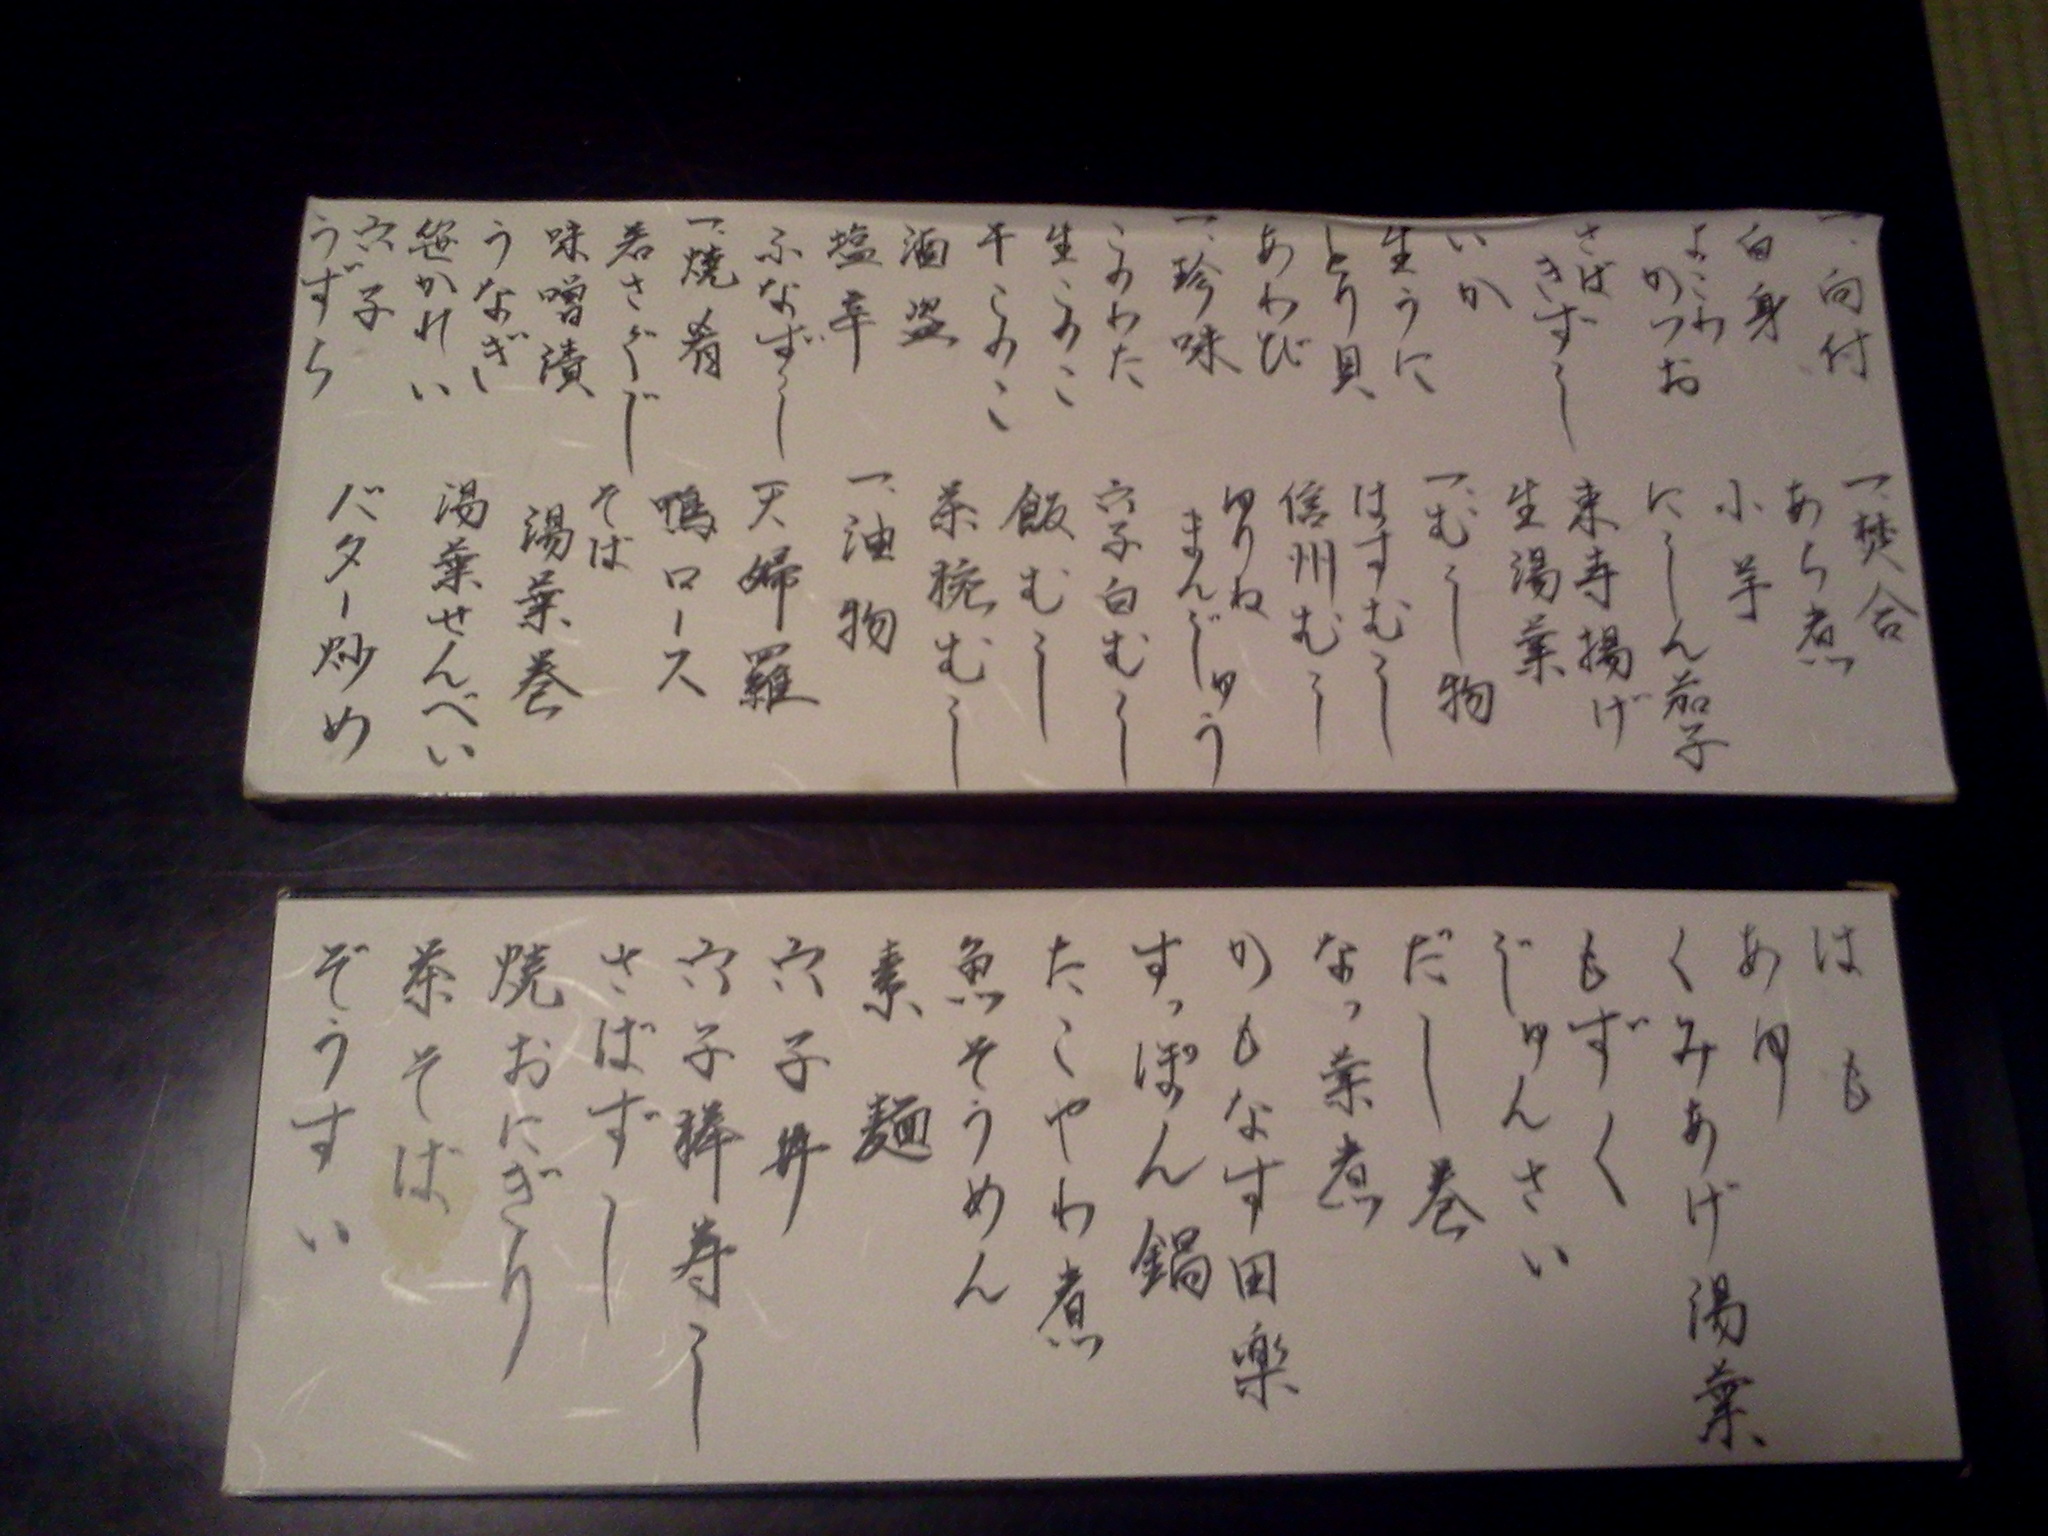 一、向付
白身
よこわ
かつお
さば
きずし
いか
生うに
とり貝
あわび
一、珍味
このわた
生このこ
干このこ
酒盗
塩辛
ふなずし
一、焼肴
若さぐじ
味噌漬
うなぎ
笹かれい
穴子
うずら
一、焚合
あら煮
小芋
にしん茄子
東寺揚げ
生湯葉
一、むし物
はすむし
信州むし
ゆりね
まんじゅう
穴子白むし
飯むし
茶椀むし
一、油物
天婦羅
鴨ロース
そば
湯葉巻
湯葉せんべい
バター炒め
はも
あゆ
くみあげ湯葉
もずく
じゅんさい
だし巻
なっ葉煮
かもなす田楽
すっぽん鍋
たこやわ煮
魚そうめん
素麺
穴子丼
穴子棒寿し
さばずし
焼おにぎり
茶そば
ぞうすい